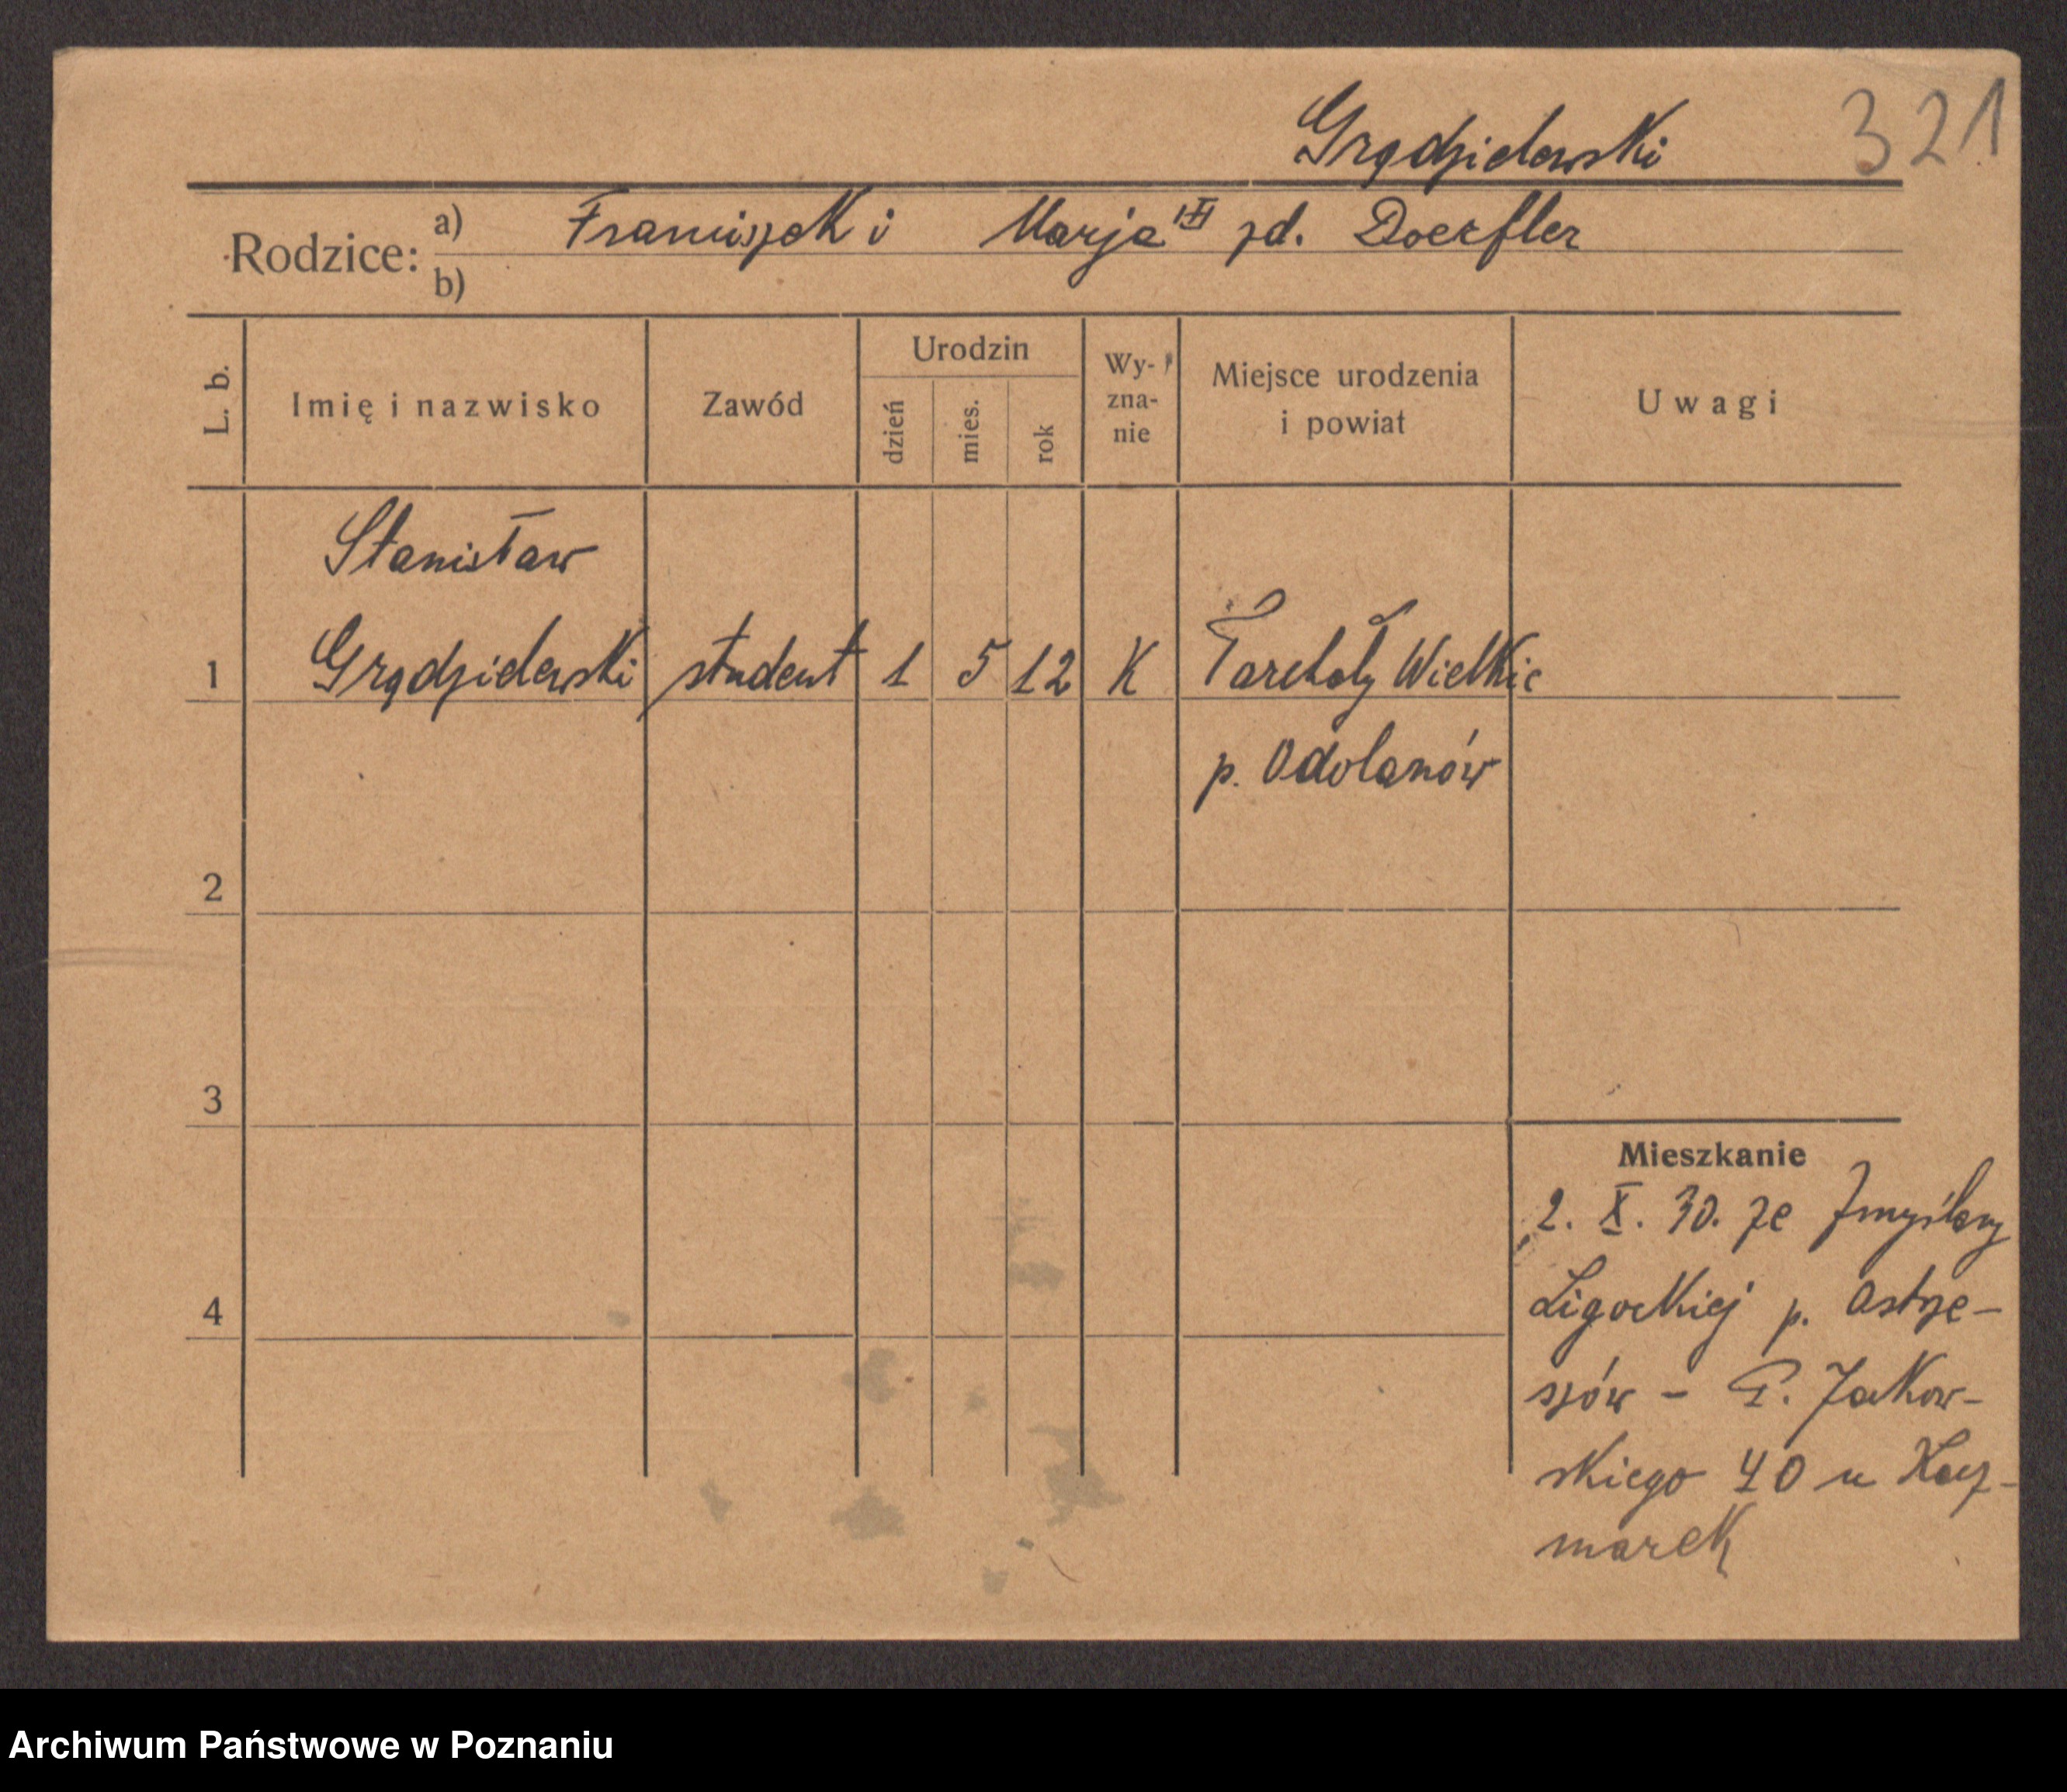 321
Grądzielewski
Rodzice: a) Franciszek i Marja zd. Doerfler
b)
L. b.
Imię i nazwisko
Zawód
Urodzin
dzień
mies.
rok
Wy-
zna-
nie
Miejsce urodzenia
i powiat
Uwagi
Stanisław
1 Grądzielewski student 1 5 12 K Tarchały Wielkie
p. Odolanów
2
3
4
Mieszkanie
2. X. 30. ze Zmyślony
Ligockiej p. Ostrze-
szów - G. Jackow-
skiego 40 u Kacz-
marek
Archiwum Państwowe w Poznaniu